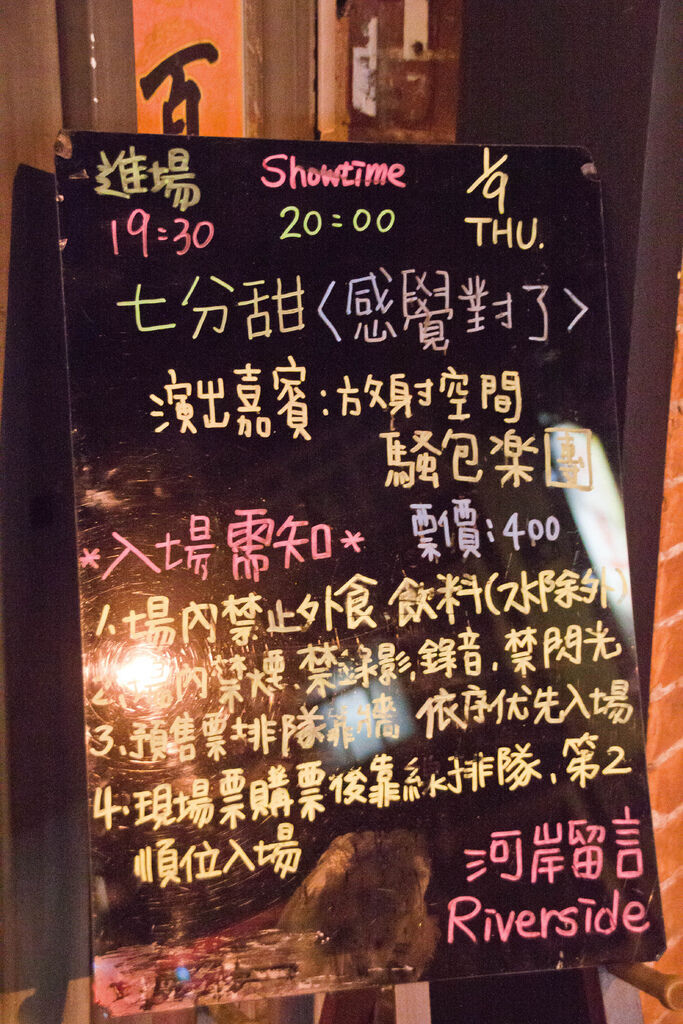 百
進場 Showtime 1/9
19:30 20:00 THU.
七分甜〈感覺對了〉
演出嘉賓:放射空間
騷包楽團
*入場需知* 票價:400
1.場內禁止外食 飲料(水除外)
2.場內禁煙.禁錄影,錄音.禁閃光
3.預售票排隊靠牆 依序优先入場
4.現場票購票後靠 排隊.第2
順位入場
河岸留言
Riverside